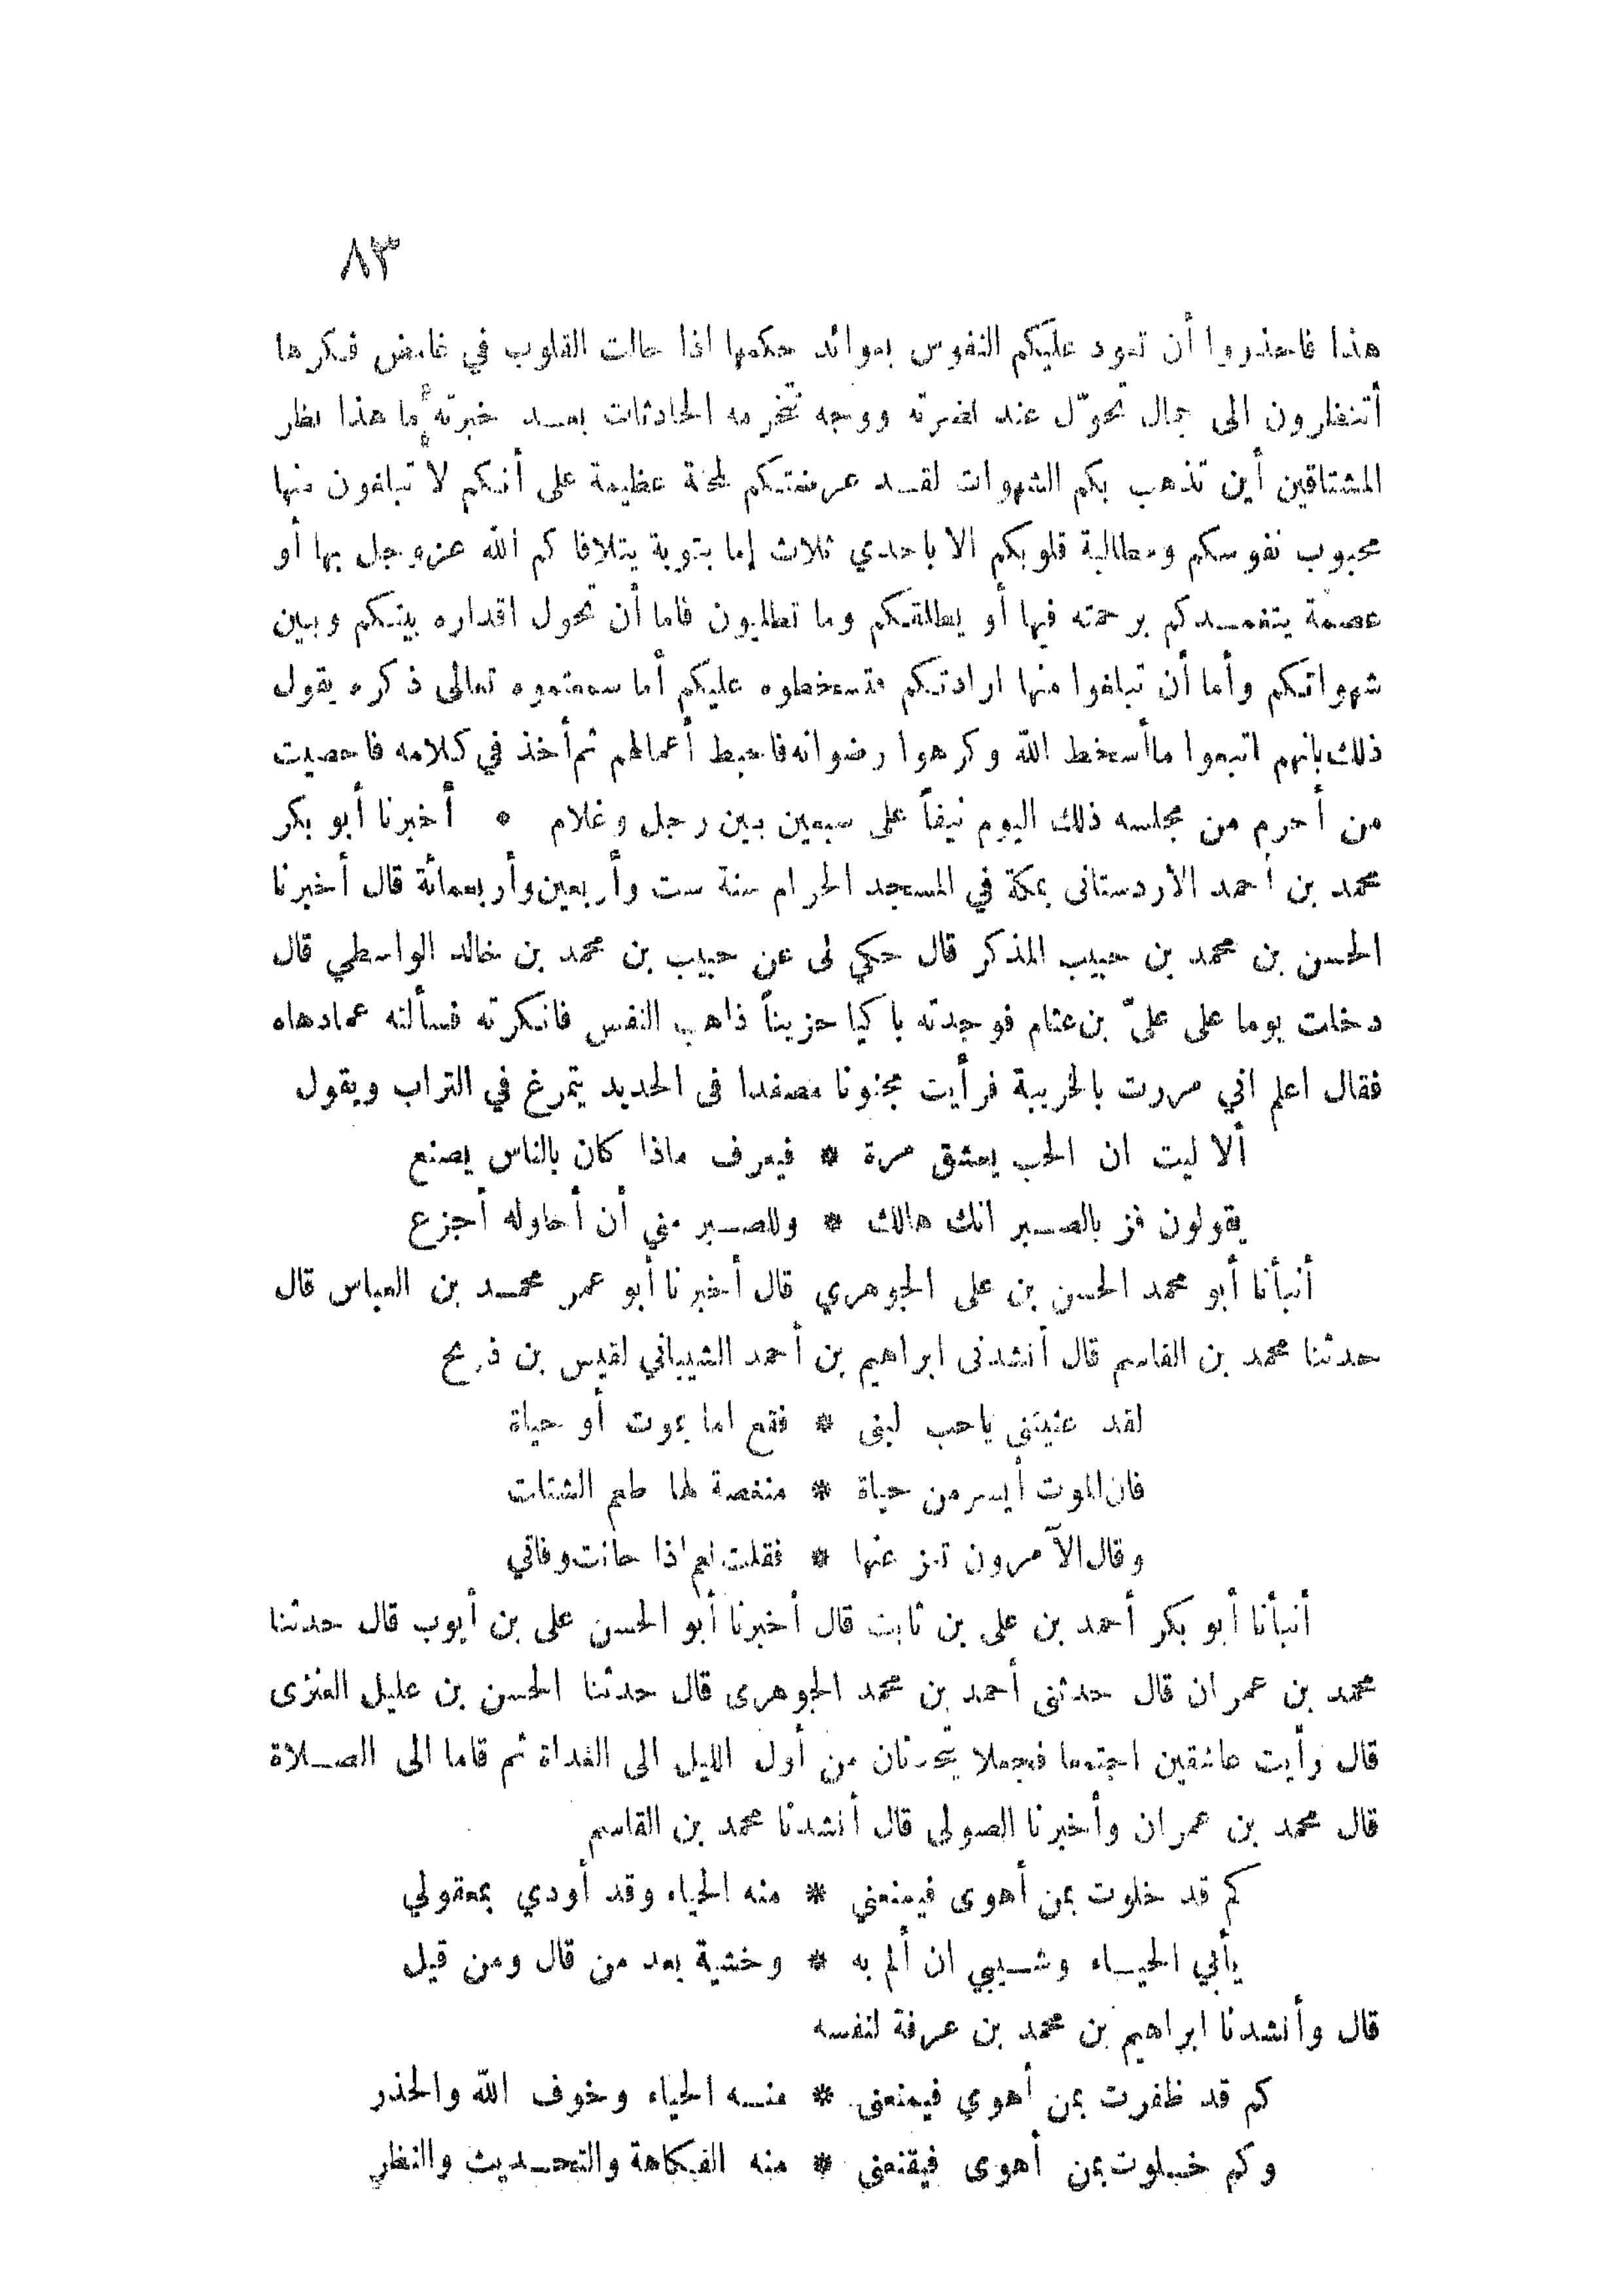 ٨٣
هذا فاحذروا أن تعود عليكم النفوس بعوائد حكمها اذا جالت القلوب في غامض فكرها
أتنظرون الى جمال تحوّل عند نضرته ووجه تخرمه الحادثات بعد خبرته ما هذا نظر
المشتاقين أين تذهب بكم الشهوات لقد عرضتكم لمحنة عظيمة على أنكم لا تبلغون منها
محبوب نفوسكم ومطالبة قلوبكم الا باحدي ثلاث إما بتوبة يتلافاكم الله عز وجل بها أو
عصمة يتغمدكم برحمته فيها أو يطلقكم وما تطلبون فاما أن تحول اقداره بينكم وبين
شهواتكم وأما أن تبلغوا منها ارادتكم فتسخطوه عليكم أما سمعتموه تعالى ذكره يقول
ذلك بانهم اتبعوا ما أسخط الله وكرهوا رضوانه فاحبط أعمالهم ثم أخذ في كلامه فاحصيت
من أحرم من مجلسه ذلك اليوم نيفاً على سبعين بين رجل وغلام * أخبرنا أبو بكر
محمد بن أحمد الاردستانى بمكة في المسجد الحرام سنة ست وأربعين وأربعمائة قال أخبرنا
الحسن بن محمد بن حبيب المذكر قال حكي لى عن حبيب بن محمد بن خالد الواسطي قال
دخلت يوما على علىّ بن عثام فوجدته باكيا حزيناً ذاهب النفس فانكرته فسألته عما دهاه
فقال اعلم اني مررت بالخريبة فرأيت مجنونا مصفدا فى الحديد يتمرغ في التراب ويقول
ألا ليت ان الحب يعشق مرة * فيعرف ماذا كان بالناس يصنع
يقولون فز بالصبر انك هالك * وللصبر مني أن أحاوله أجزع
أنبأنا أبو محمد الحسن بن على الجوهري قال أخبرنا أبو عمر محمد بن العباس قال
حدثنا محمد بن القاسم قال أنشدنى ابراهيم بن أحمد الشيباني لقيس بن ذريح
لقد عنيتنى ياحب لبنى * فقع اما بموت أو حياة
فان الموت أيسر من حياة * منغصة لها طعم الشتات
وقال الآمرون تعز عنها * فقلت نعم اذا حانت وفاتي
أنبأنا أبو بكر أحمد بن على بن ثابت قال أخبرنا أبو الحسن على بن أيوب قال حدثنا
محمد بن عمران قال حدثنى أحمد بن محمد الجوهرى قال حدثنا الحسن بن عليل العنزى
قال رأيت عاشقين اجتمعا فجعلا يتحدثان من أول الليل الى الغداة ثم قاما الى الصلاة
قال محمد بن عمران وأخبرنا الصولى قال أنشدنا محمد بن القاسم
كم قد خلوت بمن أهوى فيمنعني * منه الحياء وقد أودي بمعقولي
يأبي الحياء وشيبي ان ألم به * وخشية بعد من قال ومن قيل
قال وأنشدنا ابراهيم بن محمد بن عرفة لنفسه
كم قد ظفرت بمن أهوي فيمنعنى * منه الحياء وخوف الله والحذر
وكم خلوت بمن أهوى فيقنعنى * منه الفكاهة والتحديث والنظر